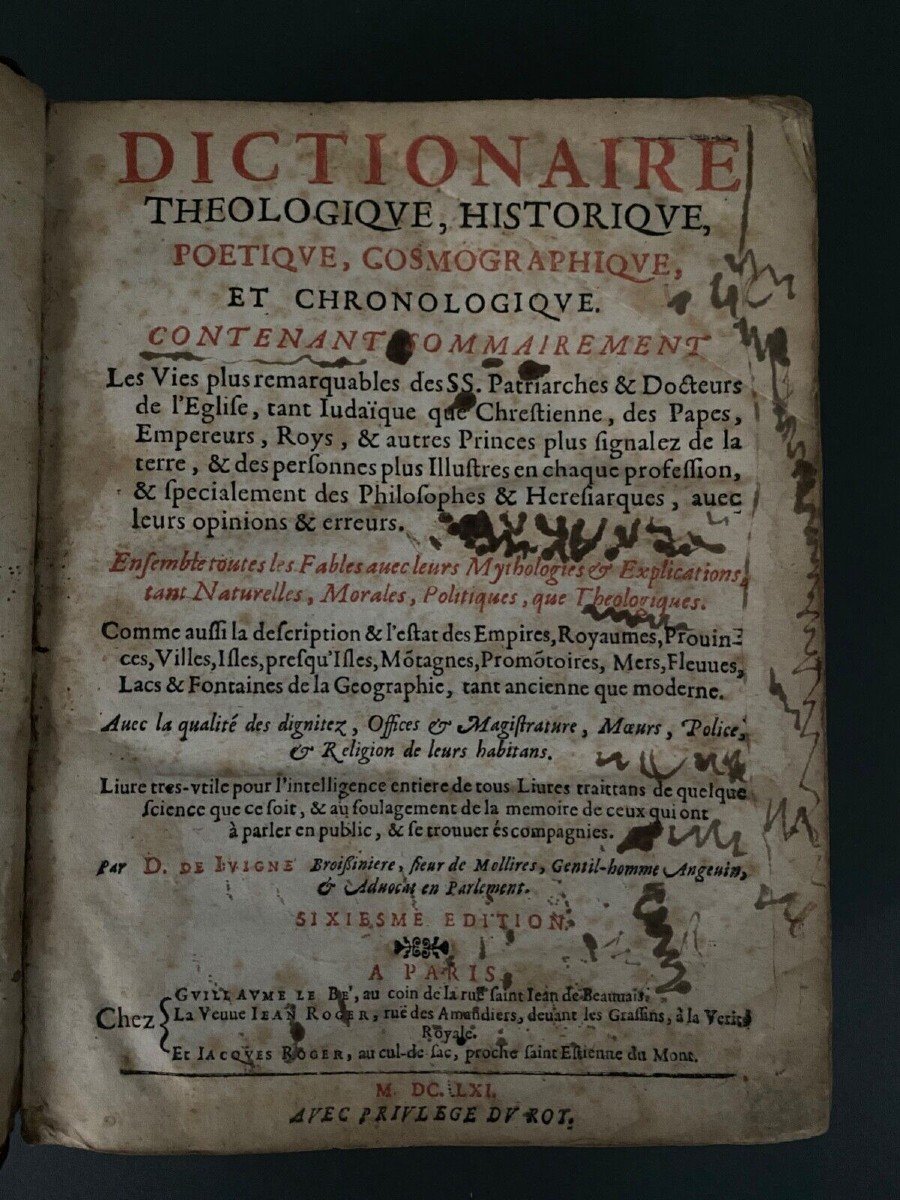 DICTIONAIRE
THEOLOGIQVE, HISTORIQVE,
POETIQVE, COSMOGRAPHIQVE,
ET CHRONOLOGIQVE.
CONTENANT SOMMAIREMENT
Les Vies plus remarquables des SS. Patriarches & Docteurs
de l'Egliſe, tant Iudaïque que Chreſtienne, des Papes,
Empereurs, Roys, & autres Princes plus ſignalez de la
terre, & des perſonnes plus Illuſtres en chaque profeſſion,
& ſpecialement des Philoſophes & Hereſiarques, auec
leurs opinions & erreurs.
Enſemble toutes les Fables auec leurs Mythologies & Explications,
tant Naturelles, Morales, Politiques, que Theologiques.
Comme auſſi la deſcription & l'eſtat des Empires, Royaumes, Prouin-
ces, Villes, Iſles, preſqu'Iſles, Mõtagnes, Promõtoires, Mers, Fleuues,
Lacs & Fontaines de la Geographie, tant ancienne que moderne.
Auec la qualité des dignitez, Offices & Magiſtrature, Mœurs, Police,
& Religion de leurs habitans.
Liure tres-vtile pour l'intelligence entiere de tous Liures traittans de quelque
ſcience que ce ſoit, & au ſoulagement de la memoire de ceux qui ont
à parler en public, & ſe trouuer és compagnies.
Par D. DE IVIGNE' Broiſſiniere, ſieur de Mollires, Gentil-homme Angeuin,
& Aduocat en Parlement.
SIXIESME EDITION.
A PARIS,
Chez GVILLAVME LE BE', au coin de la ruë ſaint Iean de Beauuais.
La Veuue IEAN ROGER, ruë des Amandiers, deuant les Graſſins, à la Verité
Royale.
Et IACQVES ROGER, au cul-de ſac, proche ſaint Eſtienne du Mont.
M. DC. LXI.
AVEC PRIVLEGE DV ROY.